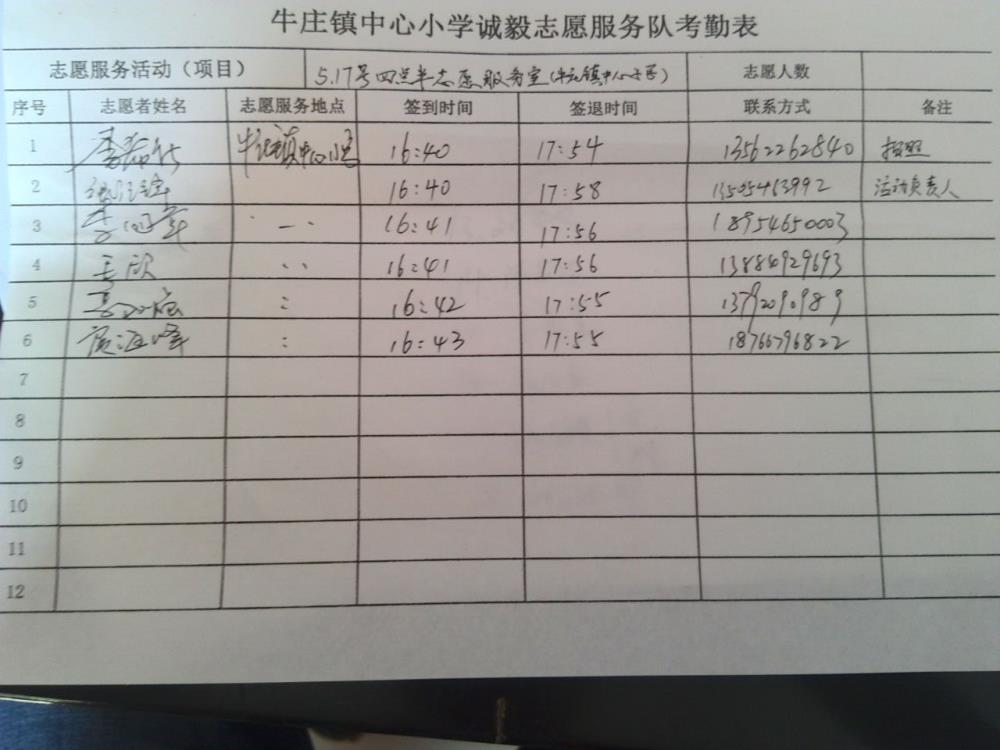 牛庄镇中心小学诚毅志愿服务队考勤表
志愿服务活动（项目） 5.17号四点半志愿服务室(牛庄镇中心小学) 志愿人数
序号 志愿者姓名 志愿服务地点 签到时间 签退时间 联系方式 备注
1 牛庄镇中心小学 16:40 17:54 13562262840 拍照
2 16:40 17:58 13505463992 活动负责人
3 16:41 17:56 18954650003
4 王欣 16:41 17:56 13884929693
5 16:42 17:55 13792090989
6 16:43 17:55 18766796822
7
8
9
10
11
12